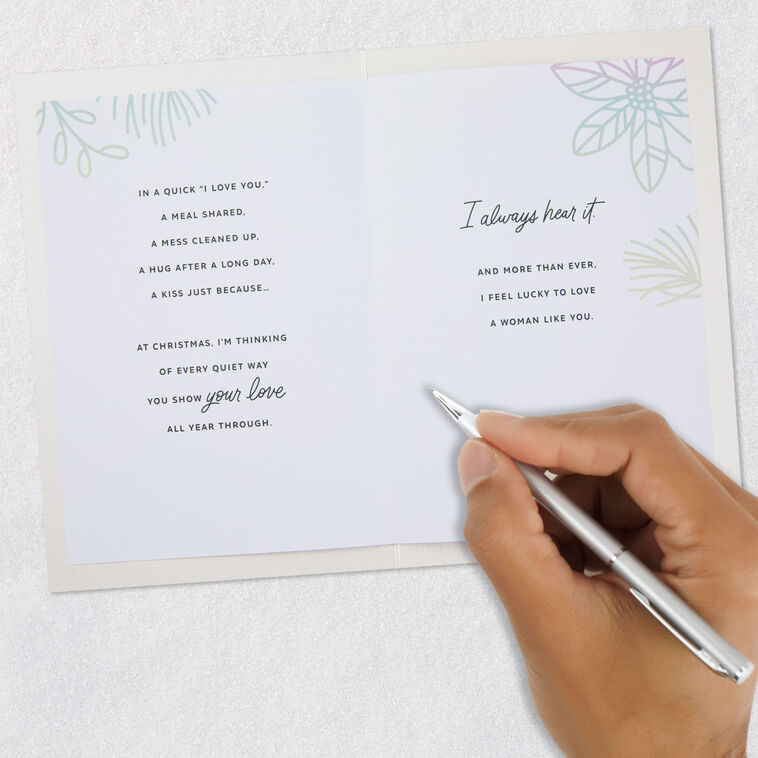 IN A QUICK “I LOVE YOU,”
A MEAL SHARED,
A MESS CLEANED UP,
A HUG AFTER A LONG DAY,
A KISS JUST BECAUSE…
AT CHRISTMAS, I’M THINKING
OF EVERY QUIET WAY
YOU SHOW your love
ALL YEAR THROUGH.
I always hear it.
AND MORE THAN EVER,
I FEEL LUCKY TO LOVE
A WOMAN LIKE YOU.